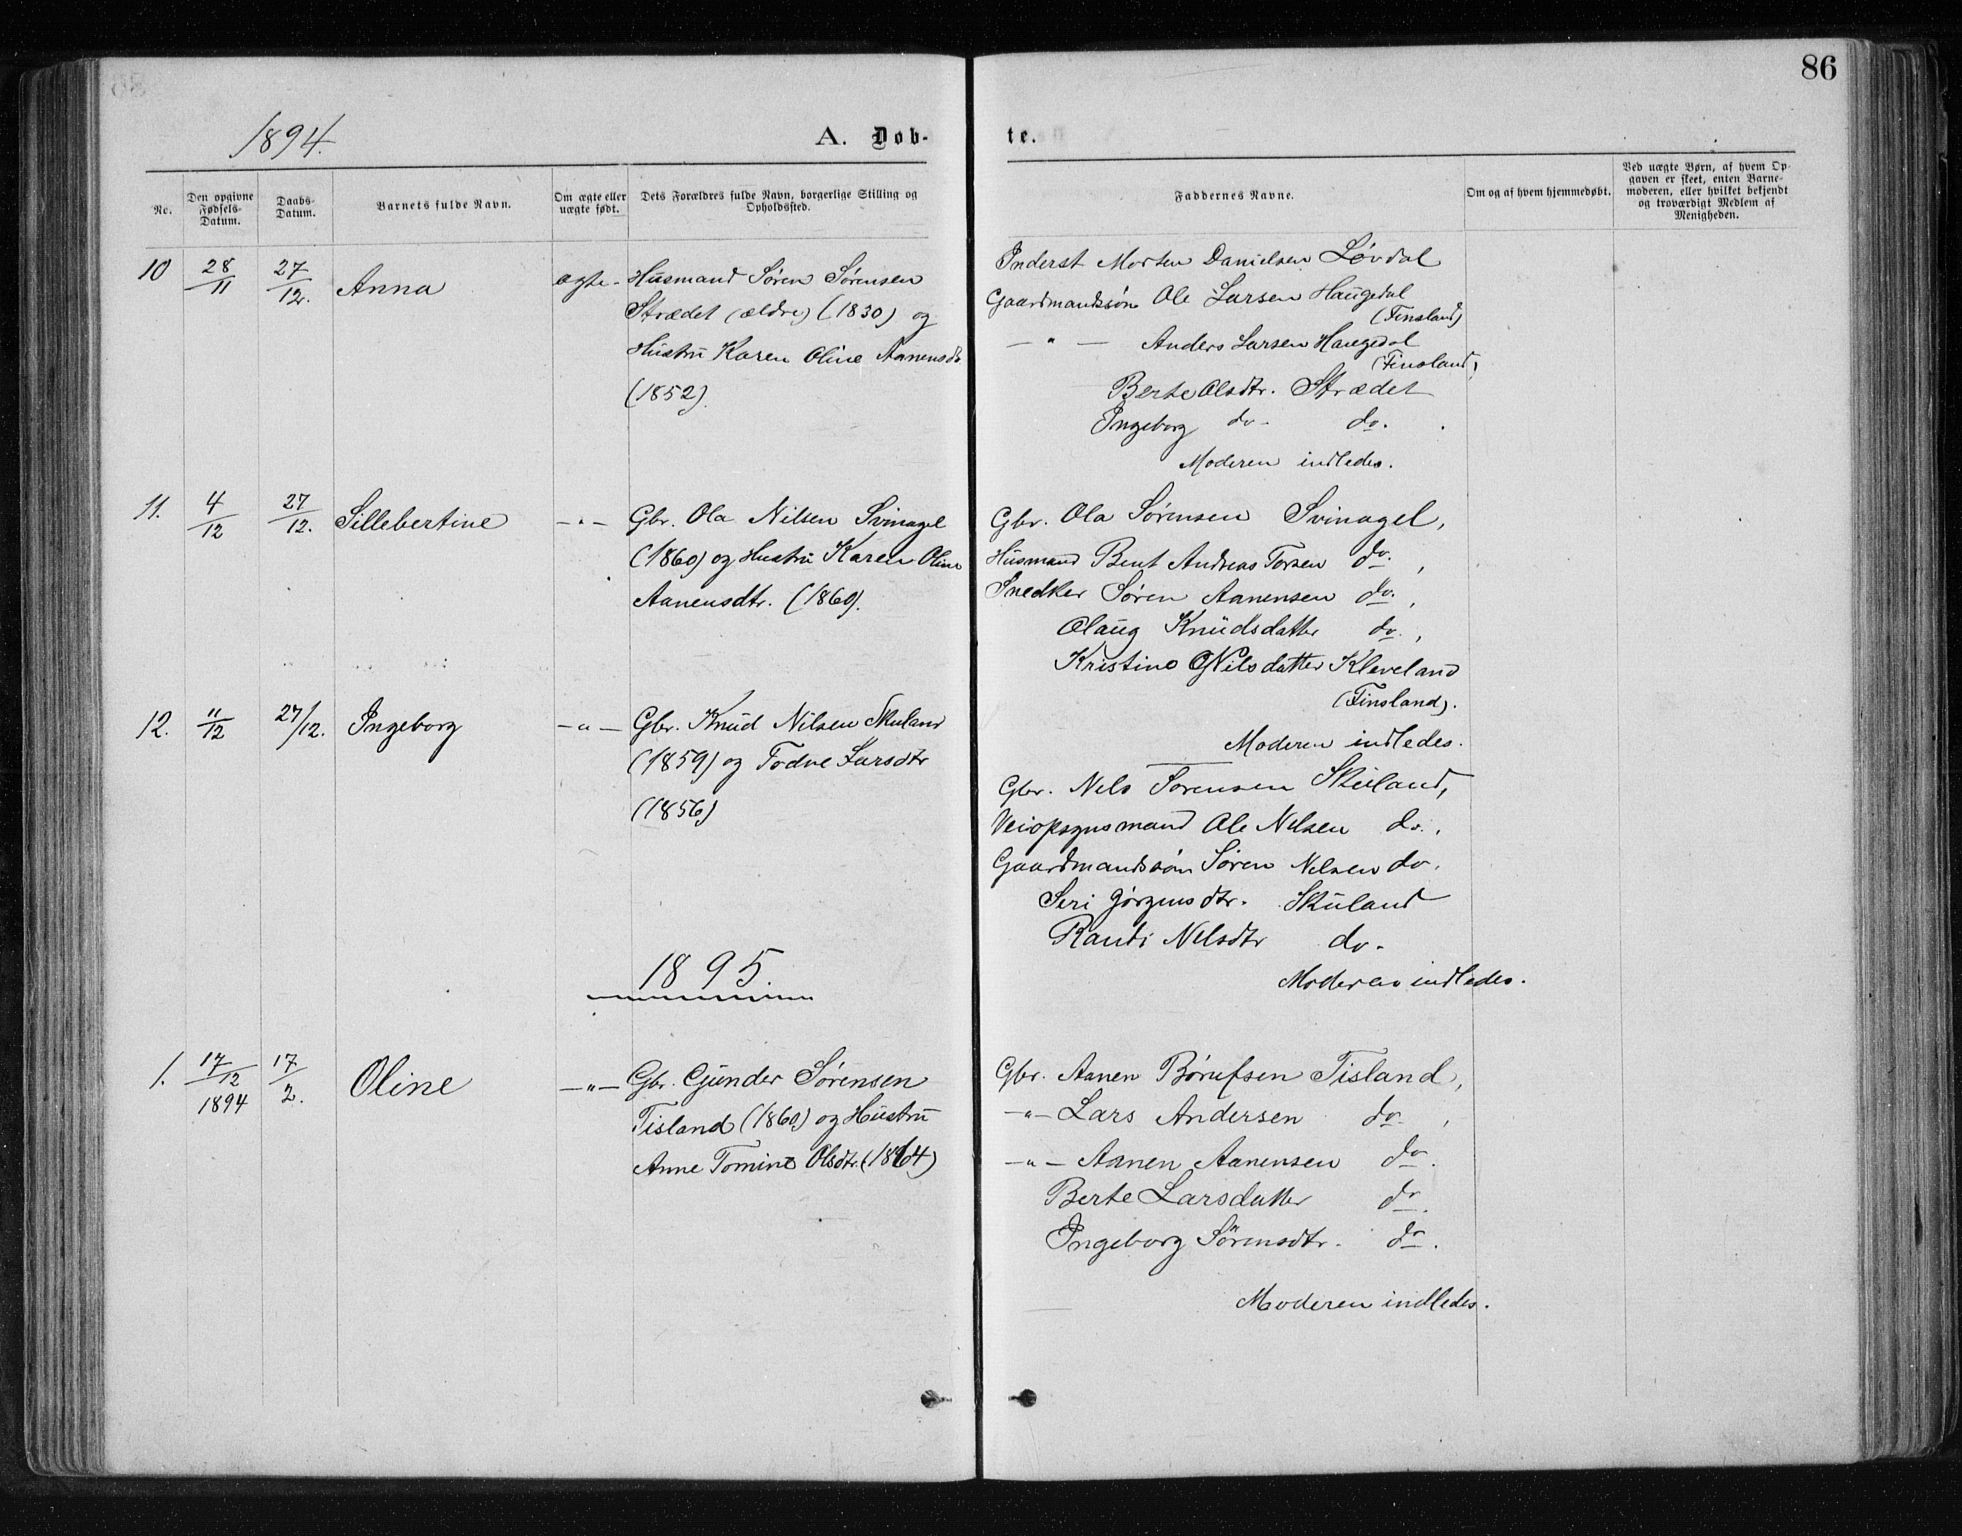 86
1894.
A. Døb-
te.
No.
Den opgivne Fødsels-Datum.
Daabs-Datum.
Barnets fulde Navn.
Om ægte eller uægte født.
Dets Forældres fulde Navn, borgerlige Stilling og Opholdssted.
Faddernes Navne.
Om og af hvem hjemmedøbt.
Ved uægte Børn, af hvem Opgaven er skeet, enten Barnemoderen, eller hvilket bekjendt og troværdigt Medlem af Menigheden.
10 28/11 27/12. Anna ægte - Husmand Søren Sørensen
Strædet (ældre) (1830) og
Hustru Karen Oline Aanensdr
(1852).
Inderst Morten Danielsen Løvdal
Gaardmandssøn Ole Larsen Haugedal
(Finsland)
— " — Anders Larsen Haugedal
(Finsland)
Berte Olsdtr. Strædet
Ingeborg do - do.
Moderen indledes.
11. 4/12 27/12. Sillebertine — " — Gbr. Ola Nilsen Svinagel
(1860) og Hustru Karen Oline
Aanensdtr. (1860).
Gbr. Ola Sørensen Svinagel,
Husmand Bent Andreas Torsen do.,
Snedker Søren Aanensen do.,
Olaug Knudsdatter do.,
Kristine Nilsdatter Kleveland
(Finsland).
Moderen indledes.
12. 11/12 27/12. Ingeborg — " — Gbr. Knud Nilsen Skuland
(1859) og Todne Larsdtr
(1856)
Gbr. Nels Sørensen Skuland,
Veiopsynsmand Ole Nelsen do.,
Gaardmandssøn Søren Nelsen do.
Seri Jørgensdtr. Skuland
Randi Nelsdtr do.
Moderen indledes.
1895.
1. 17/12 1894 17/2. Oline — " — Gbr. Gunder Sørensen
Tisland (1860) og Hustru
Anne Tomine Olsdtr. (1864)
Gbr. Aanen Børufsen Tisland,
— " — Lars Andersen do.,
— " — Aanen Aanensen do.
Berte Larsdatter do.
Ingeborg Sørensdtr. do.
Moderen indledes.